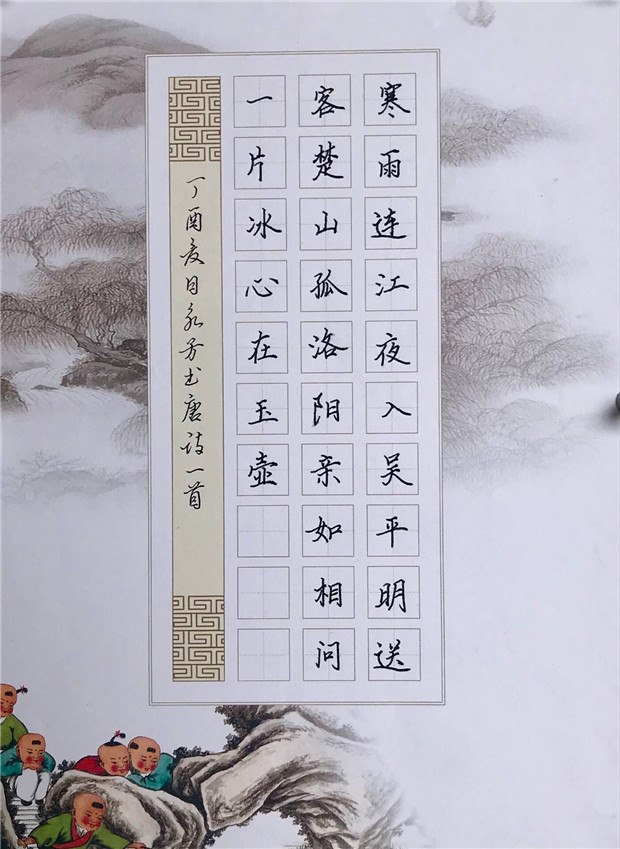 寒雨连江夜入吴平明送
客楚山孤洛阳亲如相问
一片冰心在玉壶
丁酉夏日永芳书唐诗一首